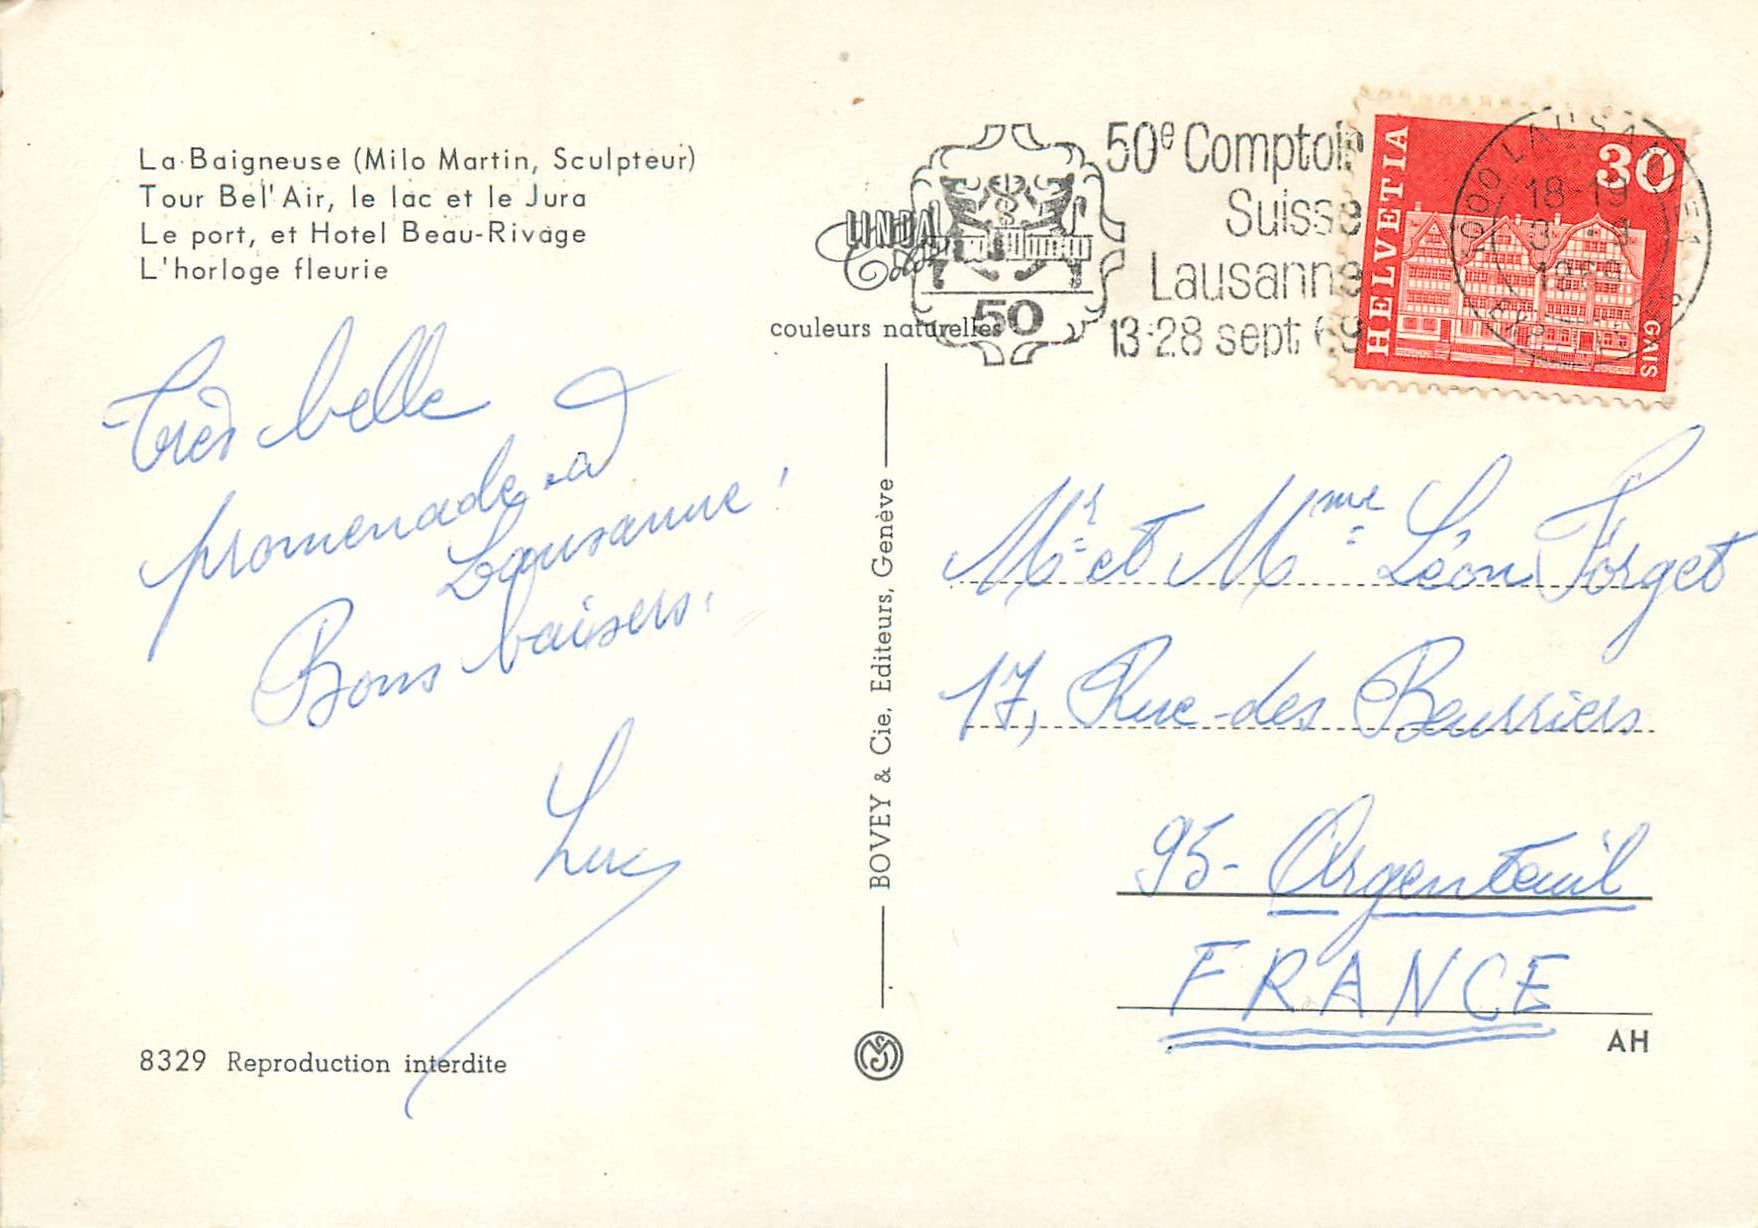 La Baigneuse (Milo Martin, Sculpteur)
Tour Bel'Air, le lac et le Jura
Le port, et Hotel Beau-Rivage
L'horloge fleurie
LINDA
Color
couleurs naturelles
50
50e Comptoir
Suisse
Lausanne
13-28 sept 69
HELVETIA
30
GAIS
1000 LAUSANNE 1
18-19
1969
Très belle
promenade à
Lausanne !
Bons baisers.
Luc
BOVEY & Cie, Editeurs, Genève
Mr et Mme Léon Forget
17, Rue des Beurriers
95- Argenteuil
FRANCE
AH
8329 Reproduction interdite